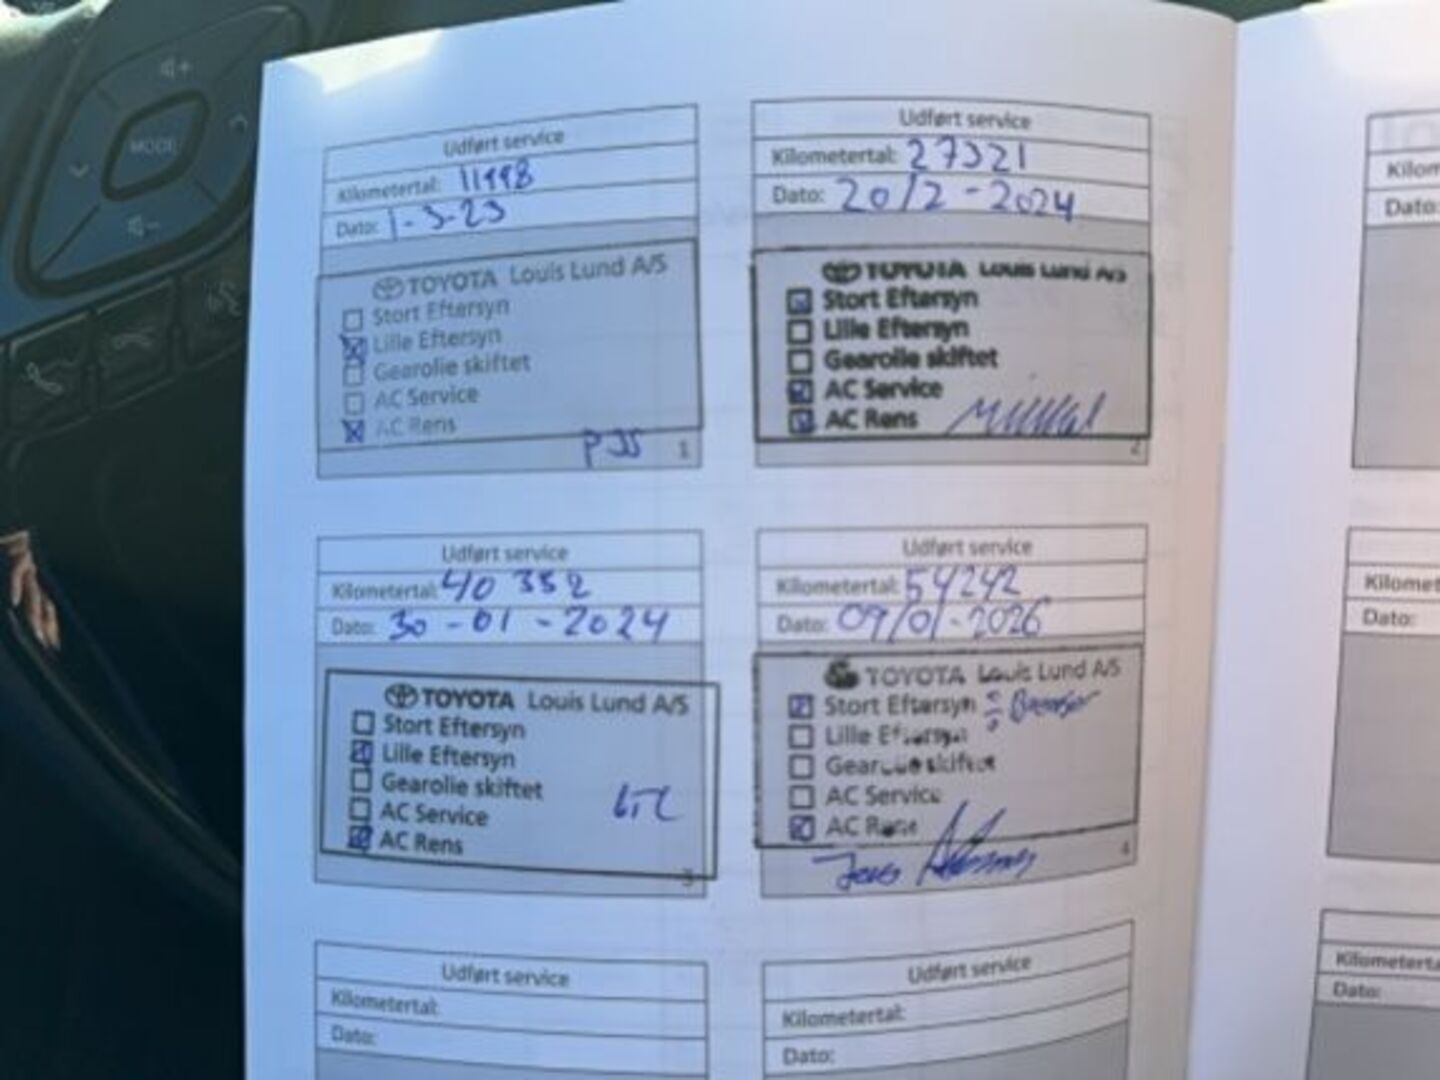 MODE
Udført service
Kilometertal: 11998
Dato: 1-3-23
TOYOTA Louis Lund A/S
Stort Eftersyn
Lille Eftersyn
Gearolie skiftet
AC Service
AC Rens
PJS 1
Udført service
Kilometertal: 27321
Dato: 20/2-2024
TOYOTA Louis Lund A/S
Stort Eftersyn
Lille Eftersyn
Gearolie skiftet
AC Service
AC Rens
2
Udført service
Kilometertal: 40352
Dato: 30-01-2024
TOYOTA Louis Lund A/S
Stort Eftersyn
Lille Eftersyn
Gearolie skiftet
AC Service
AC Rens
3
Udført service
Kilometertal: 54242
Dato: 09/01-2026
TOYOTA Louis Lund A/S
Stort Eftersyn
Lille Eftersyn
Gearolie skiftet
AC Service
AC Rens
4
Udført service
Kilometertal:
Dato:
Udført service
Kilometertal:
Dato:
Dato:
Dato:
Dato: